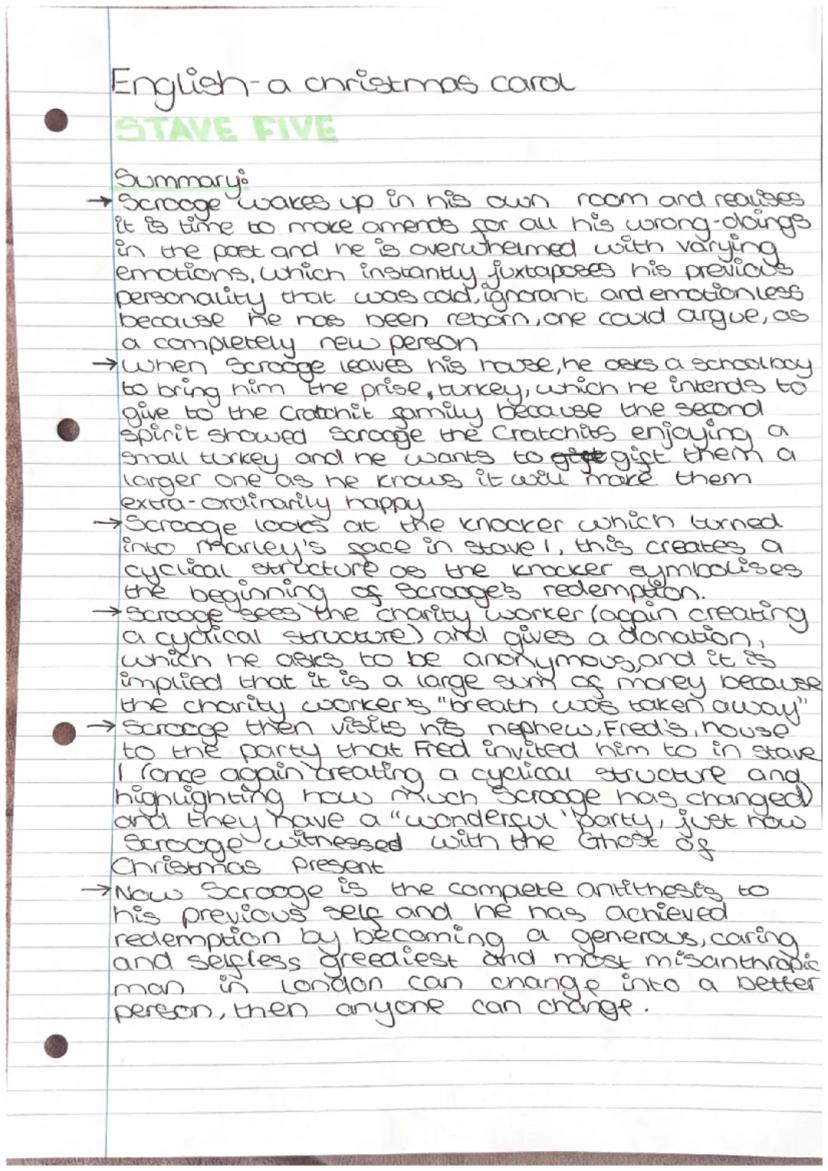 English - a christmas carol
STAVE FIVE
Summary:
→ Scrooge wakes up in his own room and realises
it is time to make amends for all his wrong-doings
in the past and he is overwhelmed with varying
emotions, which instantly juxtaposes his previous
personality that was cold, ignorant and emotionless
because he has been reborn, one could argue, as
a completely new person
→ When Scrooge leaves his house, he asks a schoolboy
to bring him the prise, turkey, which he intends to
give to the Cratchit family because the second
spirit showed Scrooge the Cratchits enjoying a
small turkey and he wants to gift them a
larger one as he knows it will make them
extra-ordinarily happy
→ Scrooge looks at the knocker which turned
into Marley's face in stave 1, this creates a
cyclical structure as the knocker symbolises
the beginning of Scrooge's redemption.
→ Scrooge sees the charity worker (again creating
a cyclical structure) and gives a donation,
which he asks to be anonymous, and it is
implied that it is a large sum of money because
the charity worker's "breath was taken away"
→ Scrooge then visits his nephew, Fred's, house
to the party that Fred invited him to in stave
1 (once again creating a cyclical structure and
highlighting how much Scrooge has changed)
and they have a "wonderful" party, just how
Scrooge witnessed with the Ghost of
Christmas Present
→ Now Scrooge is the complete antithesis to
his previous self and he has achieved
redemption by becoming a generous, caring
and selfless greediest and most misanthropic
man in London can change into a better
person, then anyone can change.